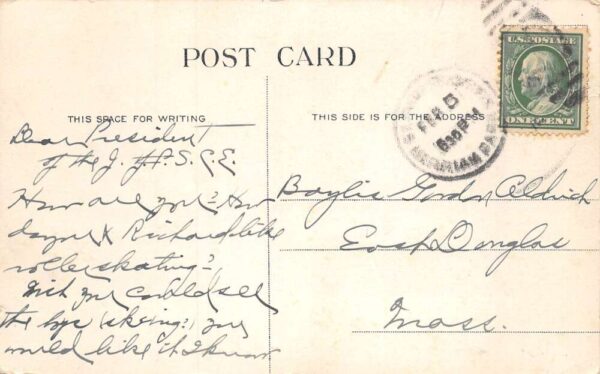 POST CARD
THIS SPACE FOR WRITING
THIS SIDE IS FOR THE ADDRESS
U.S. POSTAGE
ONE CENT
FEB 5
630 PM
Dear President
of the J. Y.P.S.C.E.
How are you? How
do you & Richard like
roller skating?
Wish you could see
the boys (skeing?) you
would like it I know
Baylis Gordon Aldrich
East Douglas
Mass.